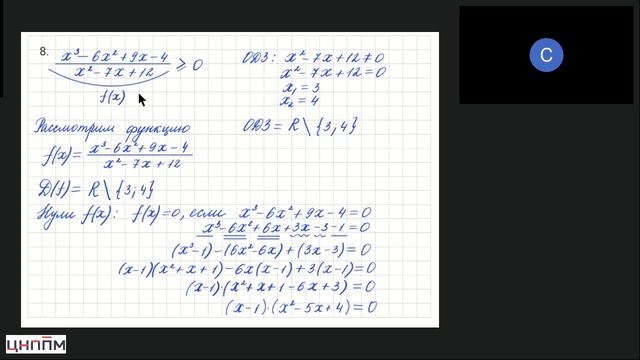 8. x³ − 6x² + 9x − 4 / x² − 7x + 12 ≥ 0
f(x)
ОДЗ: x² − 7x + 12 ≠ 0
x² − 7x + 12 = 0
x₁ = 3
x₂ = 4
ОДЗ = R \ {3; 4}
Рассмотрим функцию
f(x) = x³ − 6x² + 9x − 4 / x² − 7x + 12
D(f) = R \ {3; 4}
Нули f(x): f(x)=0, если x³ − 6x² + 9x − 4 = 0
x³ − 6x² + 6x + 3x − 3 − 1 = 0
(x³ − 1) − (6x² − 6x) + (3x − 3) = 0
(x − 1)(x² + x + 1) − 6x(x − 1) + 3(x − 1) = 0
(x − 1)·(x² + x + 1 − 6x + 3) = 0
(x − 1)·(x² − 5x + 4) = 0
C
ЦНППМ